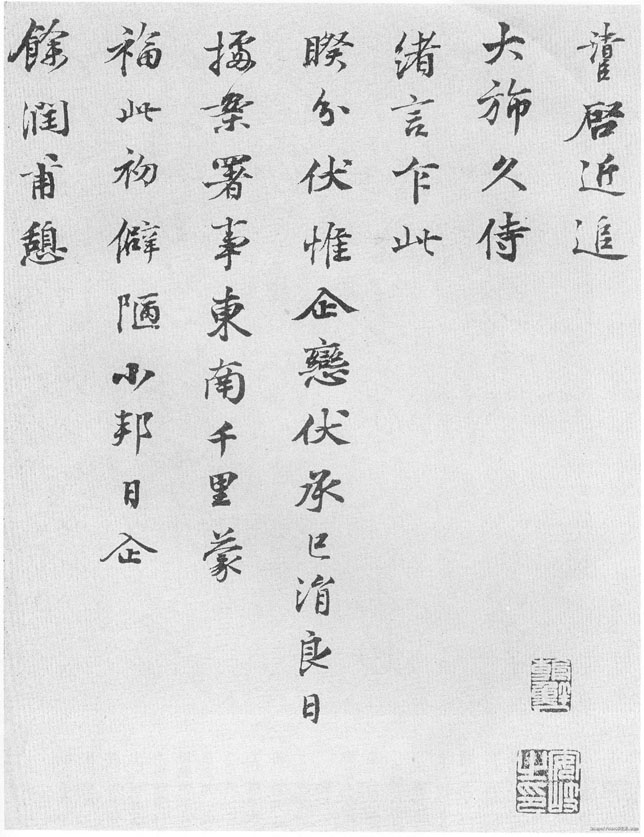 清臣啓近追
大旆久侍
緒言乍此
睽分伏惟企戀伏承已涓良日
據案署事東南千里蒙
福此初僻陋小邦日企
餘潤甫憩